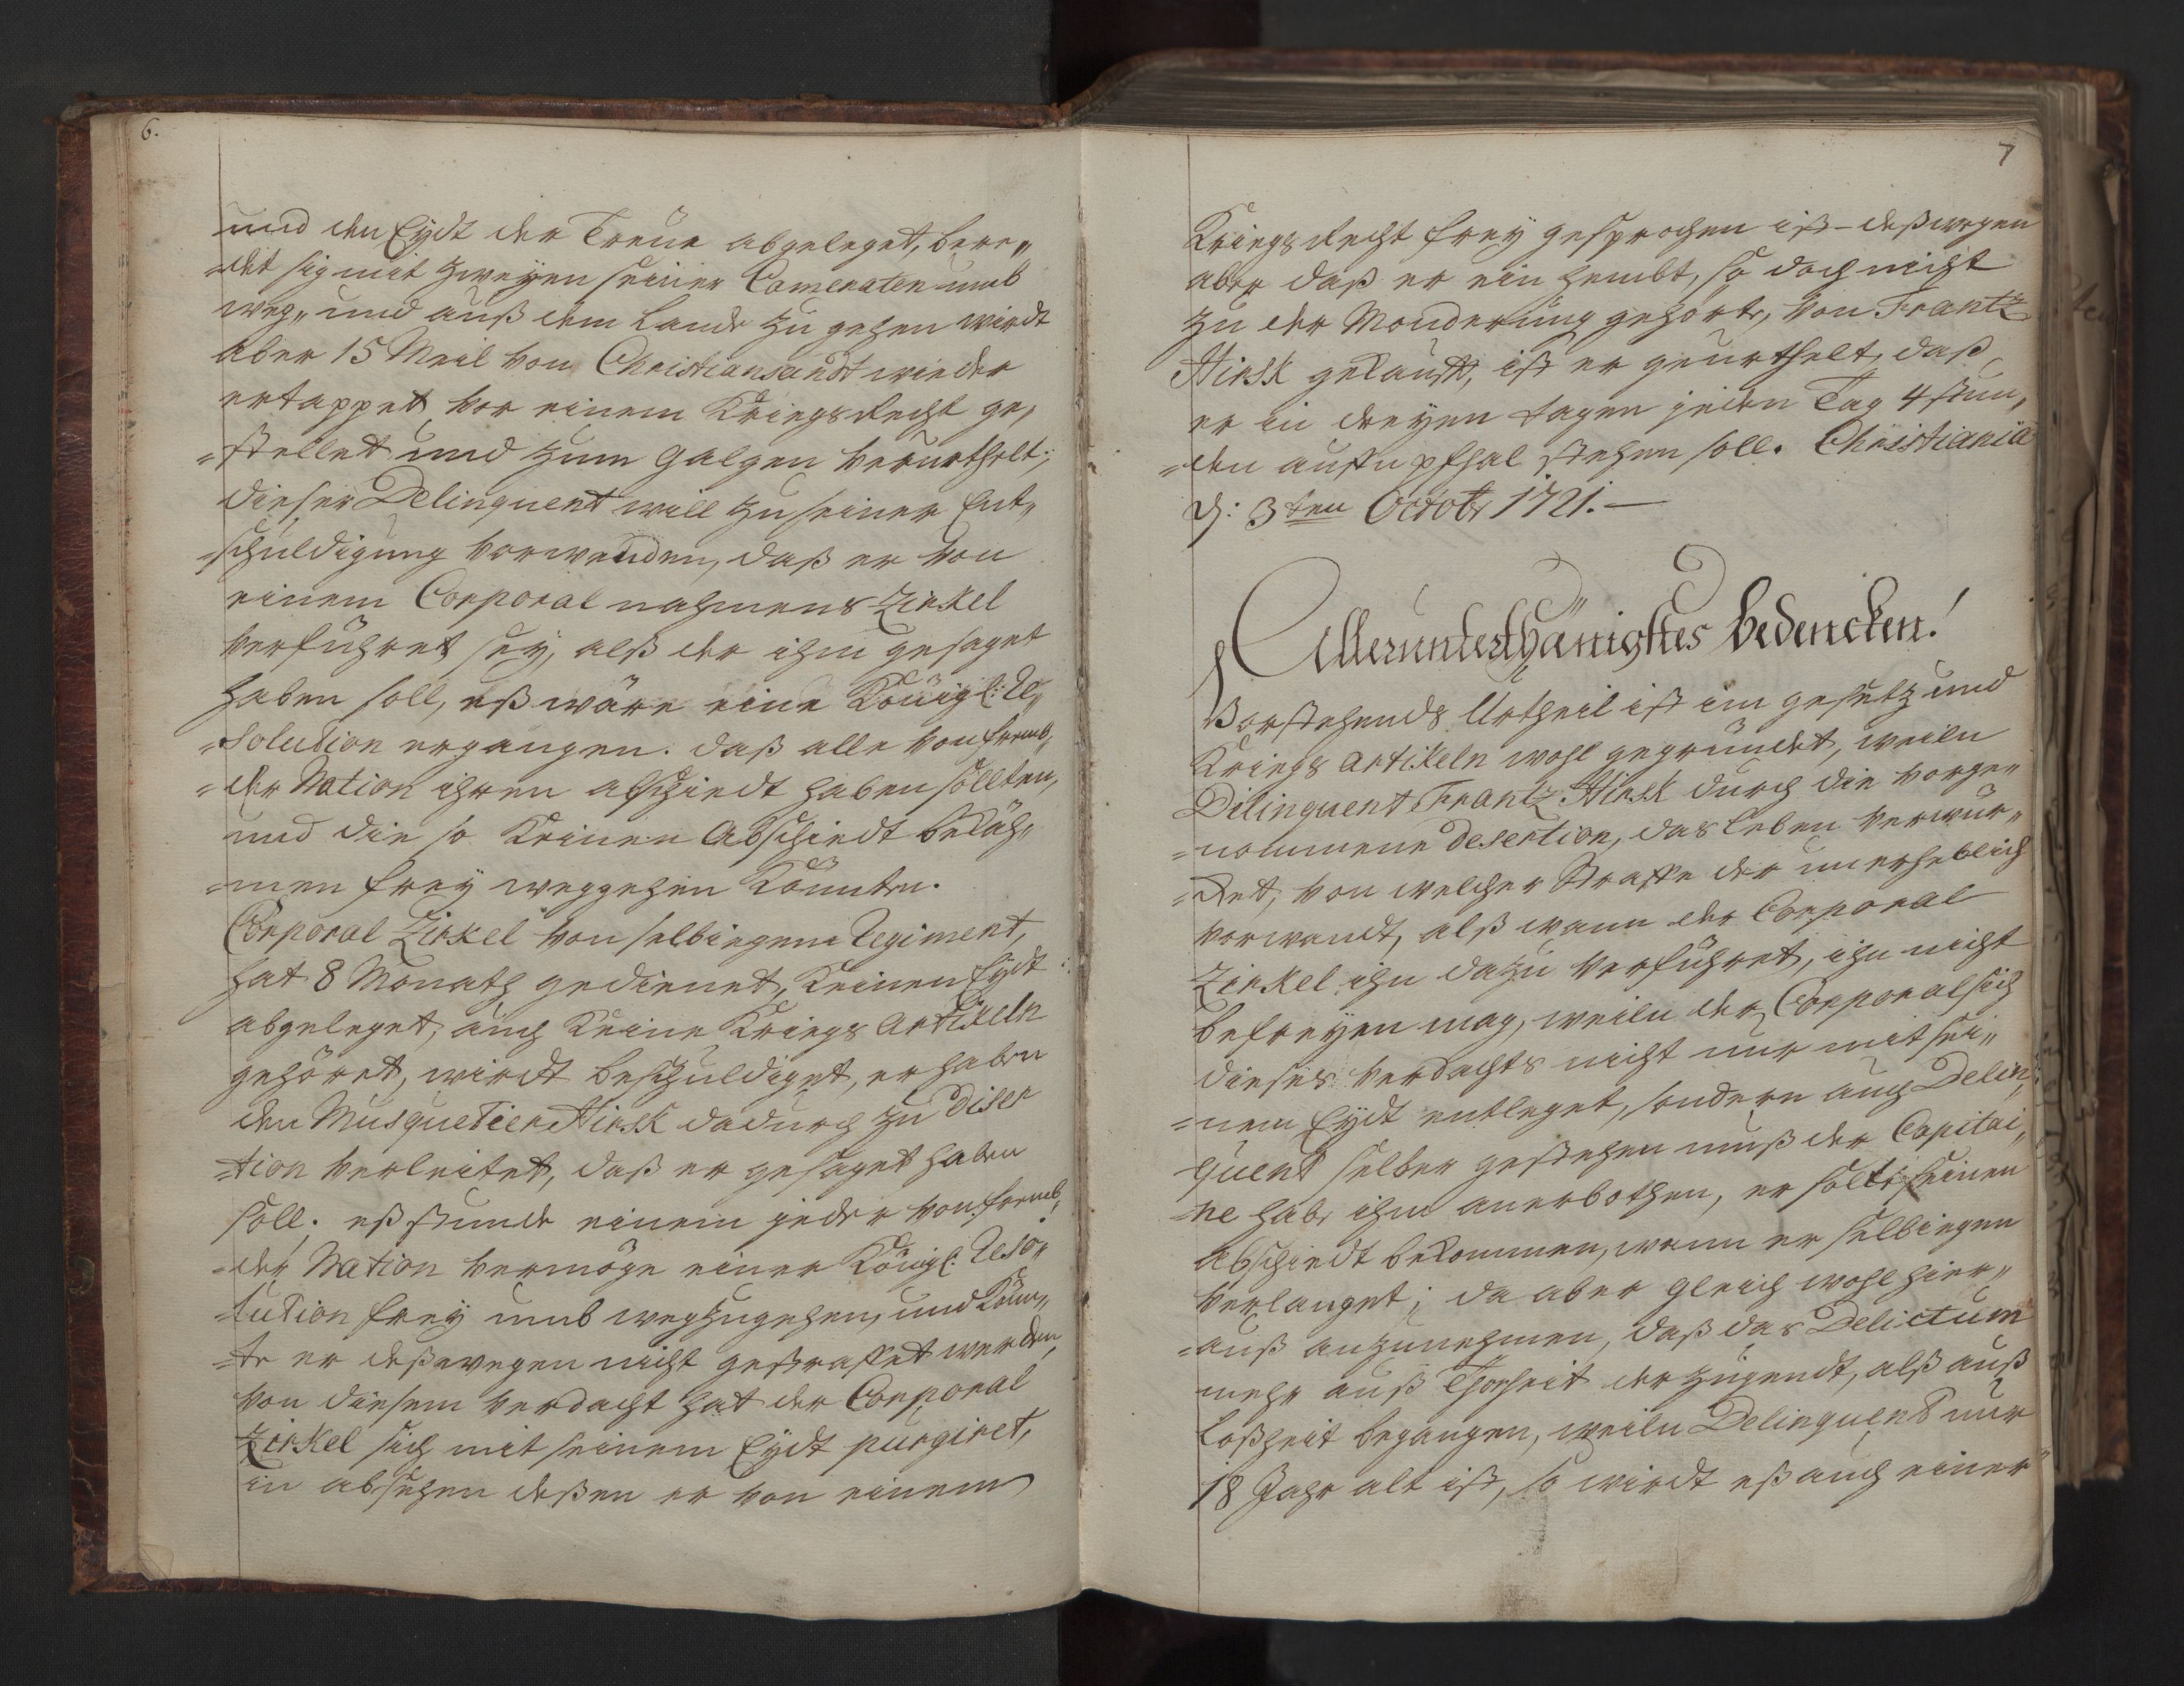 6.
und den Eydt der Treue abgeleget, bere„
„det sig mit zweyen seiner Cameraten umb
weg„ und auß dem Lande zu gehen wirdt
aber 15 Meil von Christiansandt wieder
ertappet, vor einem Kriegs Recht ge„
„stellet und zum galgen verurthelt;
dieser Delinquent will zu seiner Ent„
„schuldigung vorwenden, daß er von
einem Corporal nahmens Zirkel
verführet sey, alß der ihm gesaget
haben soll, eß wäre eine Königl: Re„
„solution ergangen: daß alle von fremb„
„der Nation ihren abschiedt haben sollten,
und die so keinen Abschiedt bekäh„
„men frey weggehen könnten.
Corporal Zirkel von selbiegem Regiment,
hat 8 Monath gedienet, keinen Eydt
abgeleget, auch keine Kriegs Artikeln
gehöret, wirdt beschuldiget, er haben
den Musquetier Hirsk dadurch zu Diser
„tion verleitet, daß er gesaget haben
soll. eß stunde einem jeder von fremb„
„der Nation vermöge einer Königl: Reso„
„lution frey umb wegzugehen, und könn„
„te er deßwegen nicht gestraffet werden,
von diesem verdacht hat der Corporal
Zirkel sich mit seinem Eydt purgiret,
in absehen deßen er von einem
7
Kriegs Recht frey gesprochen ist – deßwegen
aber daß er ein hembt, so doch nicht
zu der Monderung gehörte, von Frantz
Hirsk gekaufft, ist er geurthelt, daß
er in dreyen tagen jeden Tag 4 stun„
„den auffn pfhal stehen soll. Christiania
d: 3ten Octobr 1721. –
Allerunterthänigstes bedencken!
Vorstehends Urtheil ist im gesetz und
Kriegs Artikeln wohl gegründet, weiln
Dilinquent Frantz Hirsk durch die vorge„
„nommene Desertion, das leben verwür„
„ket, von welcher Straffe der unerheblich
vorwandt, alß wann der Corporal
Zirkel ihn dazu verführet, ihn nicht
befreyen mag, weiln der Corporal sich
dieses verdachts nicht nur mit sei„
„nem Eydt entleget, sondern auch Delin„
quent selber gestehen muß der Capitai„
„ne habe ihm anerbothen, er solte seinen
abschiedt bekommen, wann er selbiegen
verlanget; da aber gleich wohl hier„
„auß anzunehmen, daß das Delictum
mehr auß Thorheit der zugendt, alß auß
Boßheit begangen, weiln Delinquent nur
18 Jahr alt ist, so wirdt eß auch einer